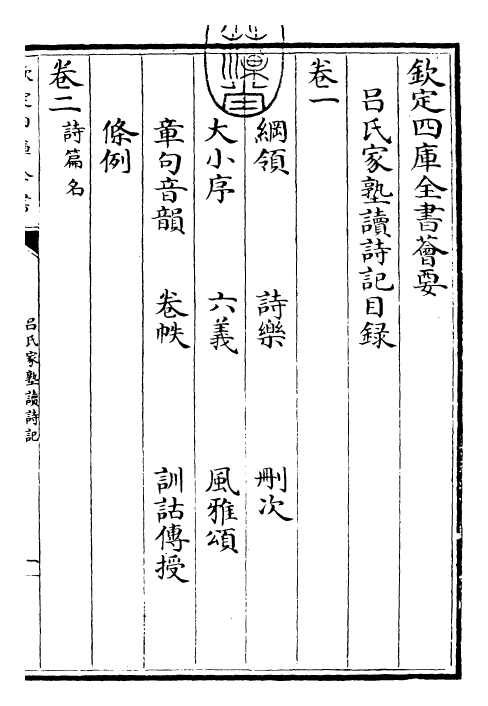 欽定四庫全書薈要
呂氏家塾讀詩記目錄
卷一
綱領　詩樂　刪次
大小序　六義　風雅頌
章句音韻　卷帙　訓詁傳授
條例
卷二 詩篇名
呂氏家塾讀詩記
一